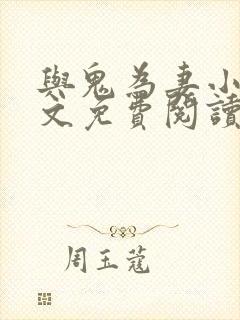 與鬼為妻小
文免費閱讀
周玉蔻